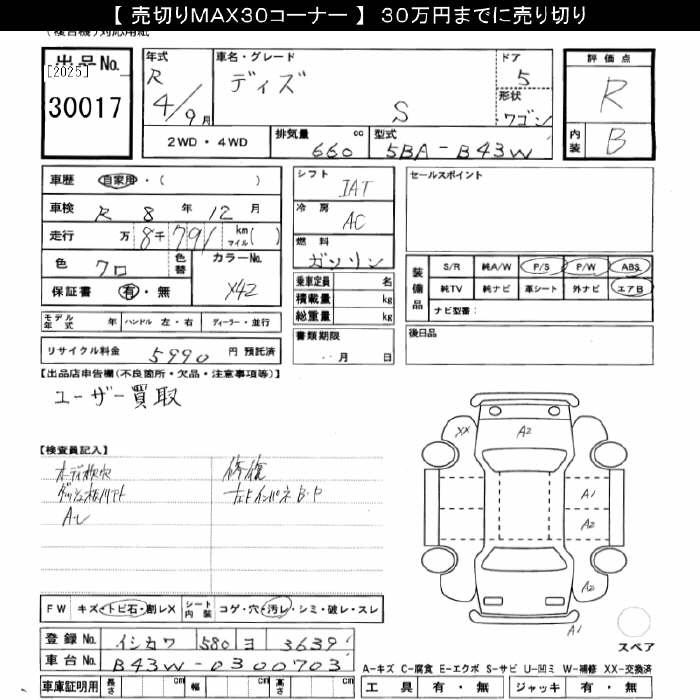 【 売切りMAX30コーナー 】 30万円までに売り切り
(複合機)対応用紙
出品No.
[2025]
30017
年式
R
4/9月
車名・グレード
ディズ
S
ドア
5
形状
ワゴン
評価点
R
内装
B
2WD・4WD
排気量 660 cc
型式 5BA-B43W
車歴 自家用・( )
車検 R 8 年 12 月
走行 万 8千 791 km マイル( )
色 クロ
色替
カラーNo. X42
保証書 有・無
モデル年式 年 ハンドル 左・右 ディーラー・並行
リサイクル料金 5990 円 預託済
シフト IAT
冷房 AC
燃料 ガソリン
乗車定員 名
積載量 kg
総重量 kg
書類期限
月 日
セールスポイント
装備品
S/R 純A/W P/S P/W ABS
純TV 純ナビ 革シート 外ナビ エアB
ナビ型番:
後日品
【出品店申告欄(不良箇所・欠品・注意事項等)】
ユーザー買取
【検査員記入】
修復
XX
A2
A1
A2
A2
A1
FW キズ・トビ石・割レX
シート内装 コゲ・穴・汚レ・シミ・破レ・スレ
スペア
登録No. イシカワ 580 ヨ 3639
車台No. B43W-0300703
A-キズ C-腐食 E-エクボ S-サビ U-凹ミ W-補修 XX-交換済
車庫証明用 長さ cm 幅 cm 高さ cm
工具 有・無 ジャッキ 有・無